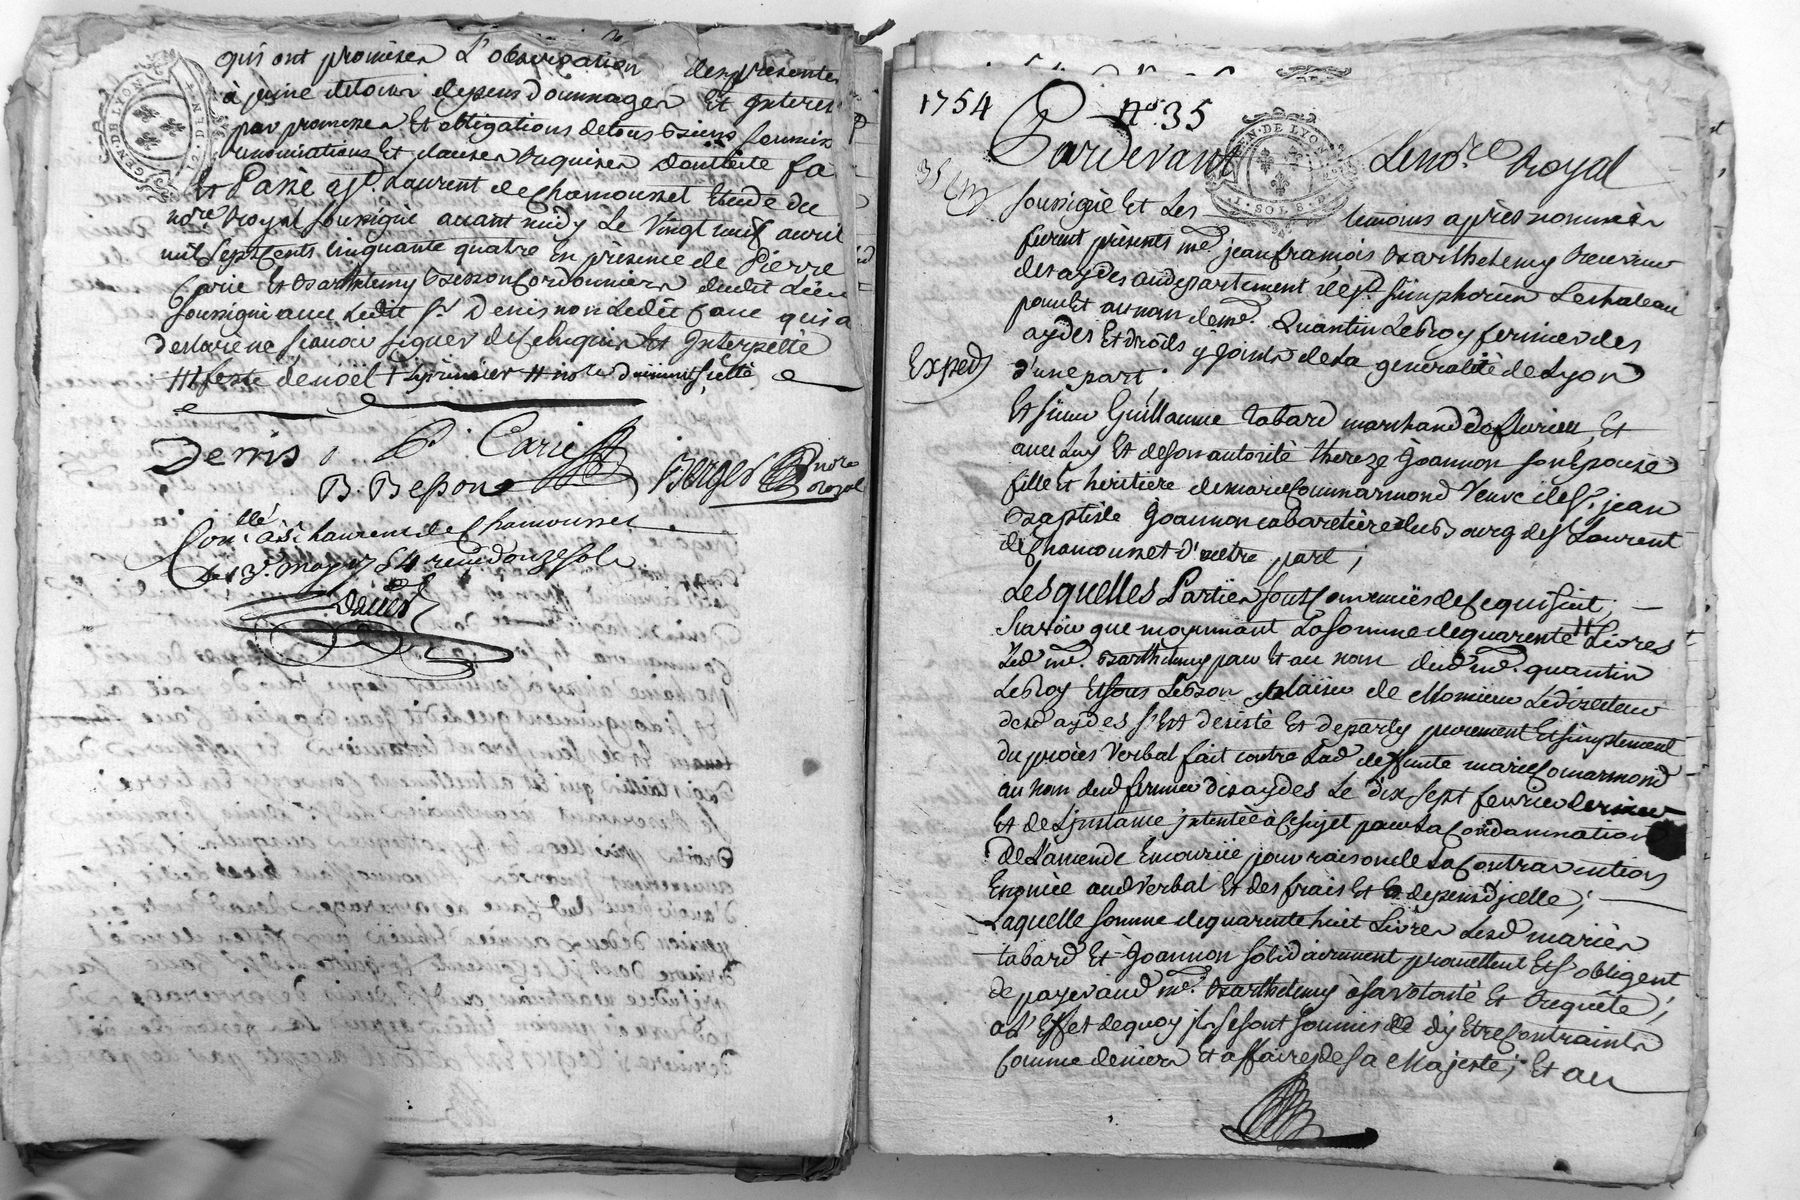 qui ont promis en L'observation des presentes
à peine detous depens dommages Et Interets
par promesses Et obligations detous biens soumis
renonciations Et clauses requises dont acte fa
Et Passé a St. Laurent de Chamousset Etude du
nore Royal soussigné avant midy Le Vingt neuf avril
mil sept cents cinquante quatre En présence de Pierre
Carie Et Barthelemy Besson Cordonniers dudit Lieu
soussigné avec Ledit Sr. Denis non Ledit qui a
declaré ne scavoir signer de ce Enquis Et Interpellé
feste denoël
Denis P. Carie
B. Besson Berger nore royal
Conllé à St Laurent de Chamousset
Le 13e. may 1754 reçu douze sols
GEN.DE LYON
1754 No. 35
Pardevant Le nore. Royal
GEN.DE LYON
1. SOL 8. D
soussigné Et Les temoins après nommés
furent présents me. jean françois Barthelemy receveur
des aydes au departement de St. simphorien Lechateau
pour Et au nom de me. Quantin Leroy fermier des
aydes Et droits y joints de La generalité de Lyon
Exped
d'une part.
Et sieur Guillaume tabard marchand de fleurieu, Et
avec Luy Et de son autorité thereze Joannon son Epouse
fille Et heritiere de marie Commarmond Veuve de Sr. jean
Baptiste Joannon cabaretiere du Bourg de St Laurent
de Chamousset d'autre part;
Lesquelles Parties sont Convenües de ce qui suit;
scavoir que moyennant La somme de quarente Livres
Led. me. Barthelemy pour Et au nom dud. me. quantin
Leroy Et sous Le Bon plaisir de Monsieur Le directeur
des aydes s'Est desisté Et departy purement Et simplement
du procès Verbal fait contre Lad. deffunte marie Commarmond
au nom dud. fermier des aydes Le dix sept fevrier dernier
Et de L'instance intentée à ce sujet pour La Condamnation
de L'amende Encourüe pour raison de La Contravention
Enoncée aud. Verbal Et des frais Et depens d'jcelle;
Laquelle somme de quarente huit Livres Lesd. mariés
tabard Et Joannon solidairement promettent Et s'obligent
de payer aud. me. Barthelemy à sa volonté Et Requête;
a L'Effet de quoy jls se sont soumis d'y Etre Contraints
Comme deniers Et affaires de Sa Majesté; Et au